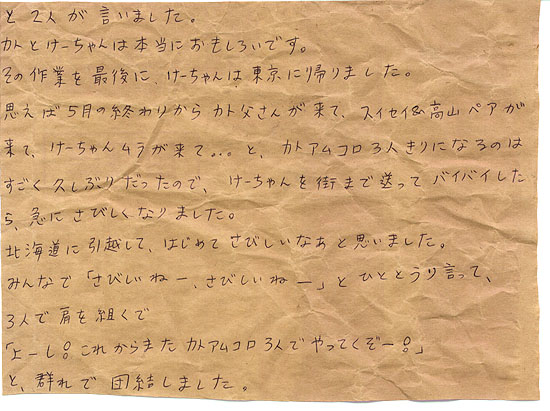 と2人が言いました。
カトとけーちゃんは本当におもしろいです。
その作業を最後に、けーちゃんは東京に帰りました。
思えば5月の終わりからカト父さんが来て、スイセイ&高山ペアが
来て、けーちゃんムラが来て...と、カトアムコロ3人きりになるのは
すごく久しぶりだったので、けーちゃんを街まで送ってバイバイした
ら、急にさびしくなりました。
北海道に引越して、はじめてさびしいなぁと思いました。
みんなで「さびしいねー、さびしいねー」とひととうり言って、
3人で肩を組くで
「よーし!これからまたカトアムコロ3人でやってくぞー!」
と、群れで団結しました。